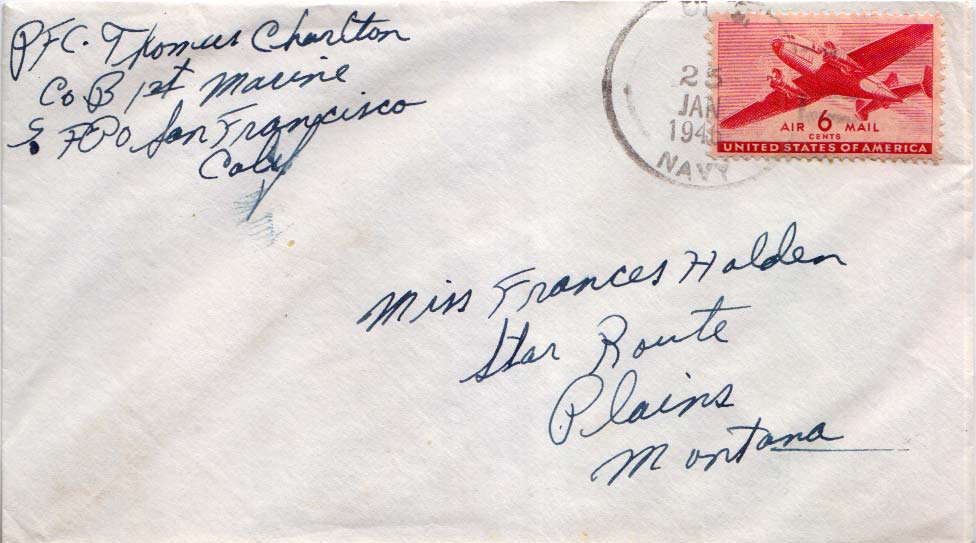 PFC. Thomas Charlton
Co B 1st Marine
FPO San Francisco
Caly
25
JAN
194
NAVY
AIR 6 MAIL
CENTS
UNITED STATES OF AMERICA
Miss Frances Holden
Star Route
Plains
Montana